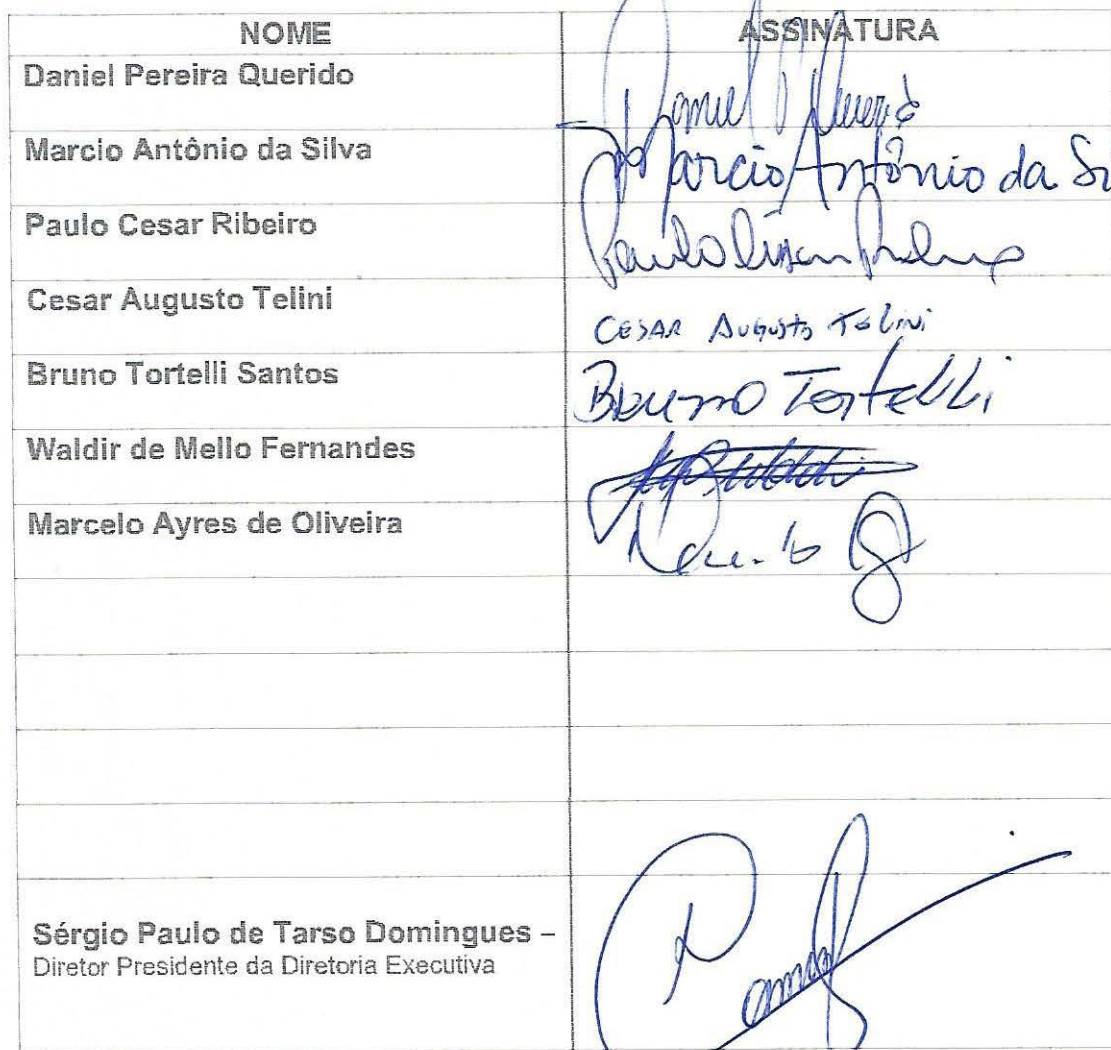 NOME ASSINATURA
Daniel Pereira Querido
Marcio Antônio da Silva Marcio Antônio da Si
Paulo Cesar Ribeiro Paulo
Cesar Augusto Telini CESAR AUGUSTO TELINI
Bruno Tortelli Santos Bruno Tortelli
Waldir de Mello Fernandes
Marcelo Ayres de Oliveira
Sérgio Paulo de Tarso Domingues –
Diretor Presidente da Diretoria Executiva